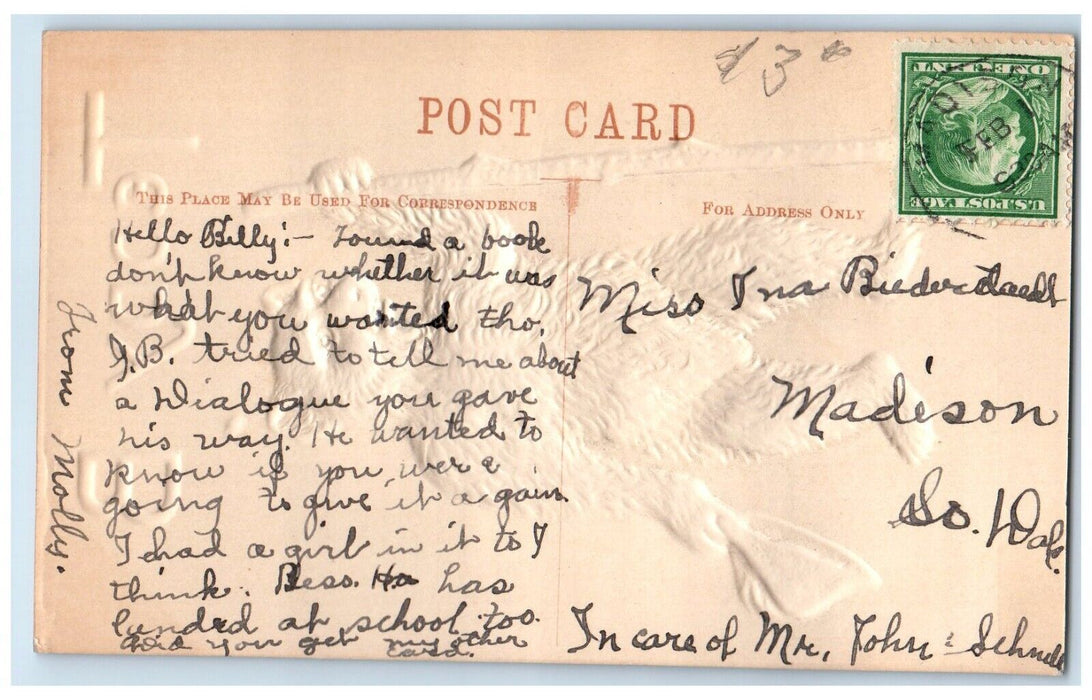 $3.00
POST CARD
THIS PLACE MAY BE USED FOR CORRESPONDENCE
FOR ADDRESS ONLY
ONE CENT
U.S. POSTAGE
MADISON
FEB
Hello Billy:- Found a book
don't know whether it was
what you wanted tho.
J.B. tried to tell me about
a Dialogue you gave
his way. He wanted to
know if you were
going to give it again.
I had a girl in it to I
think. Bess. Ha has
at school too.
did you get my other
card.
From Molly.
Miss Ina
Madison
So. Dak.
In care of Mr. John